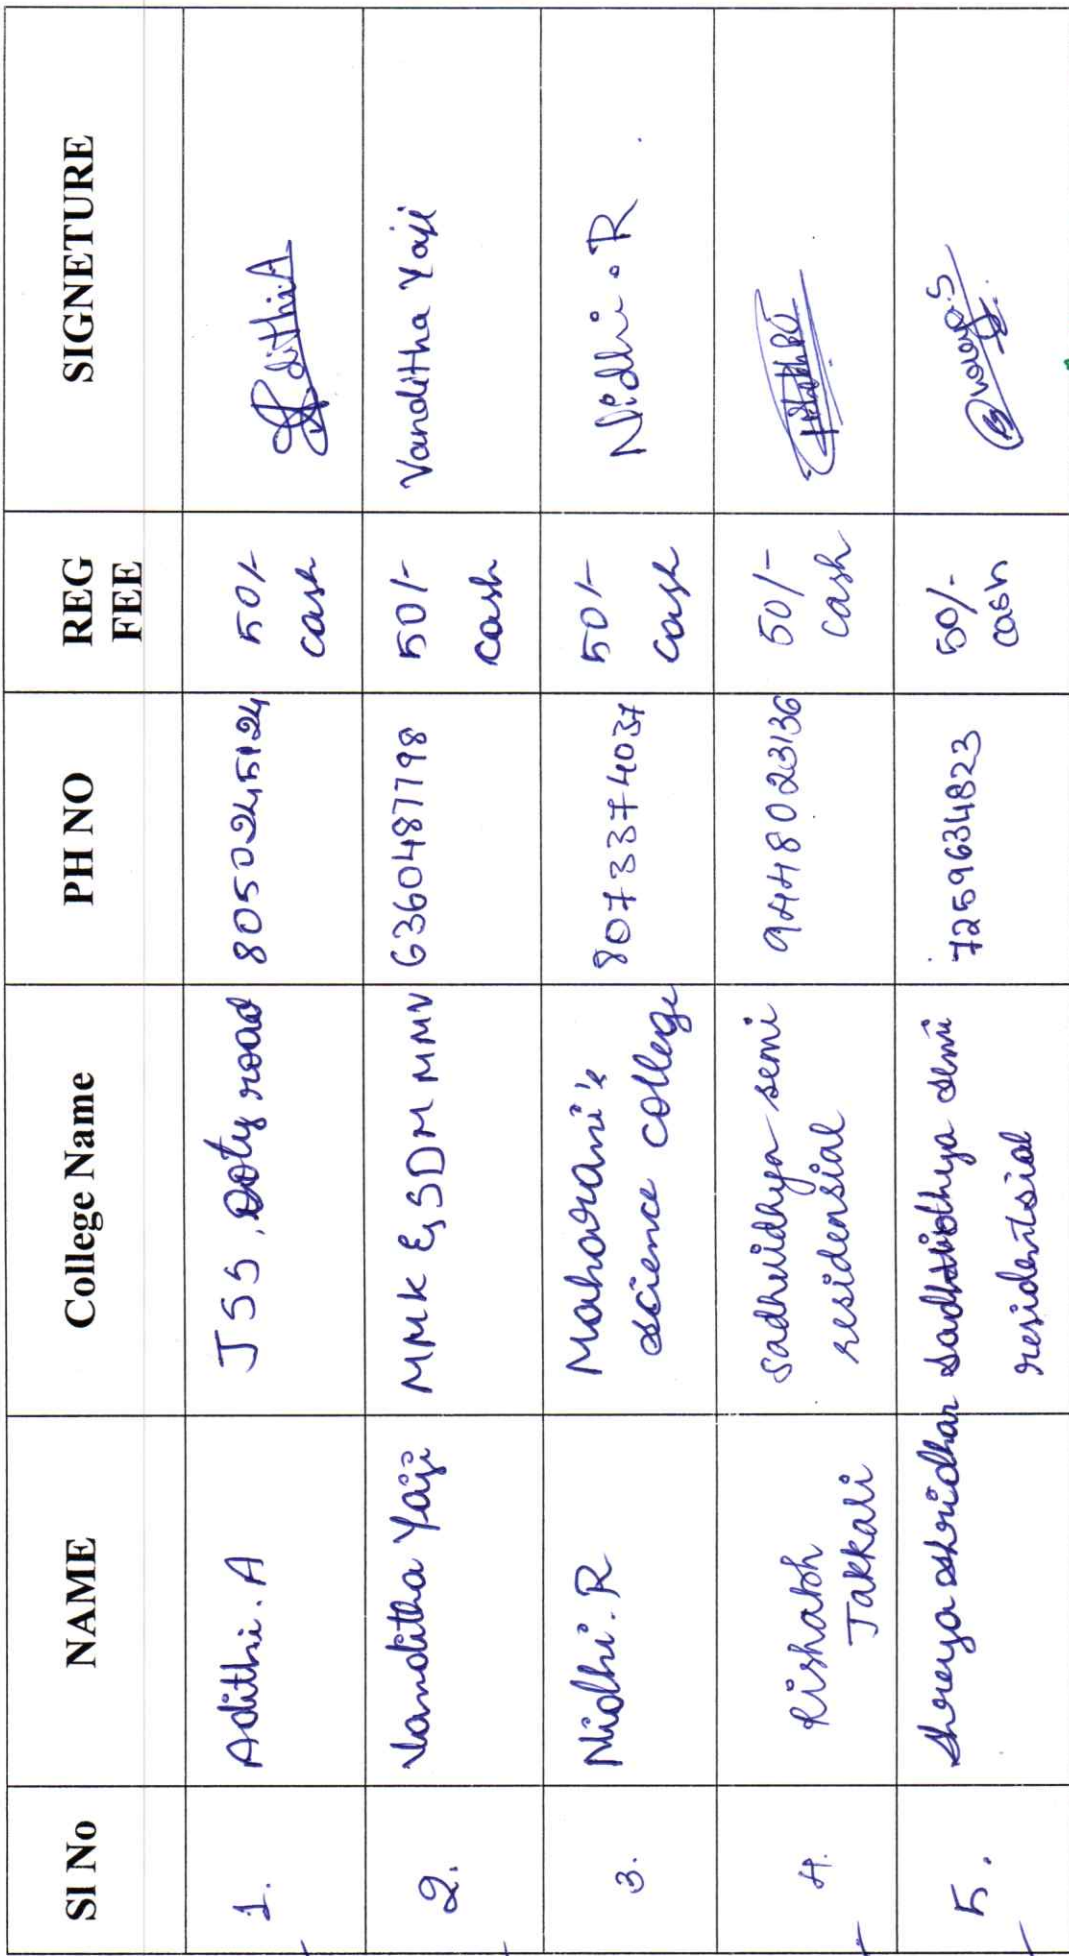 SI No NAME College Name PH NO REG FEE SIGNETURE
1. Adithi.A JSS, Ooty road 8050245124 50/- cash Adithi.A
2. Vanditha Yaji MMK & SDM MMV 6360487798 50/- cash Vanditha Yaji
3. Nidhi.R Maharani's science college 8073374037 50/- cash Nidhi.R
4. Rishabh Jakkali Sadhvidhya semi residensial 9448023136 50/- cash
5. Shreya shridhar Sadhvidhya semi residentsial 7259634823 50/- cash